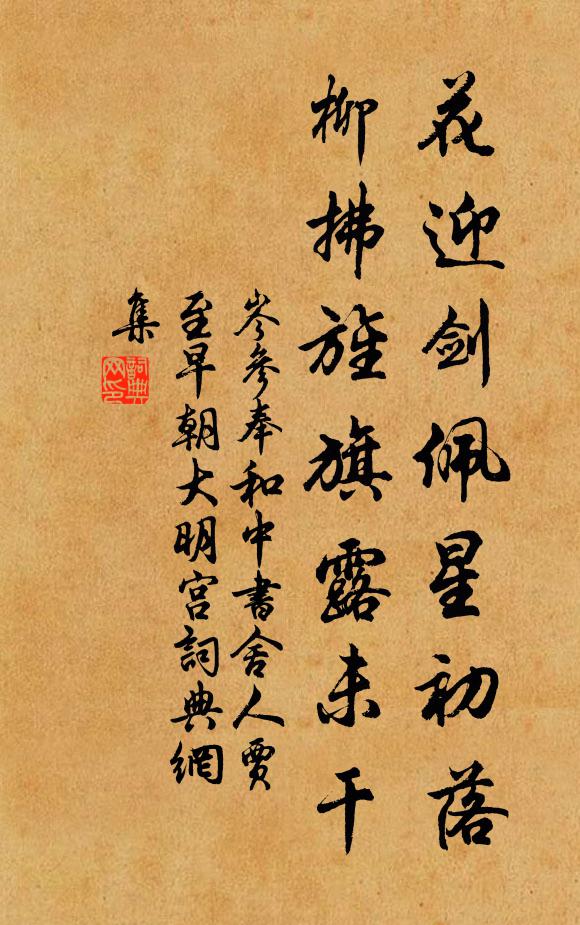 花迎剑佩星初落
柳拂旌旗露未干
岑参奉和中書舍人賈
至早朝大明宫詞典網
集
詞典
网印